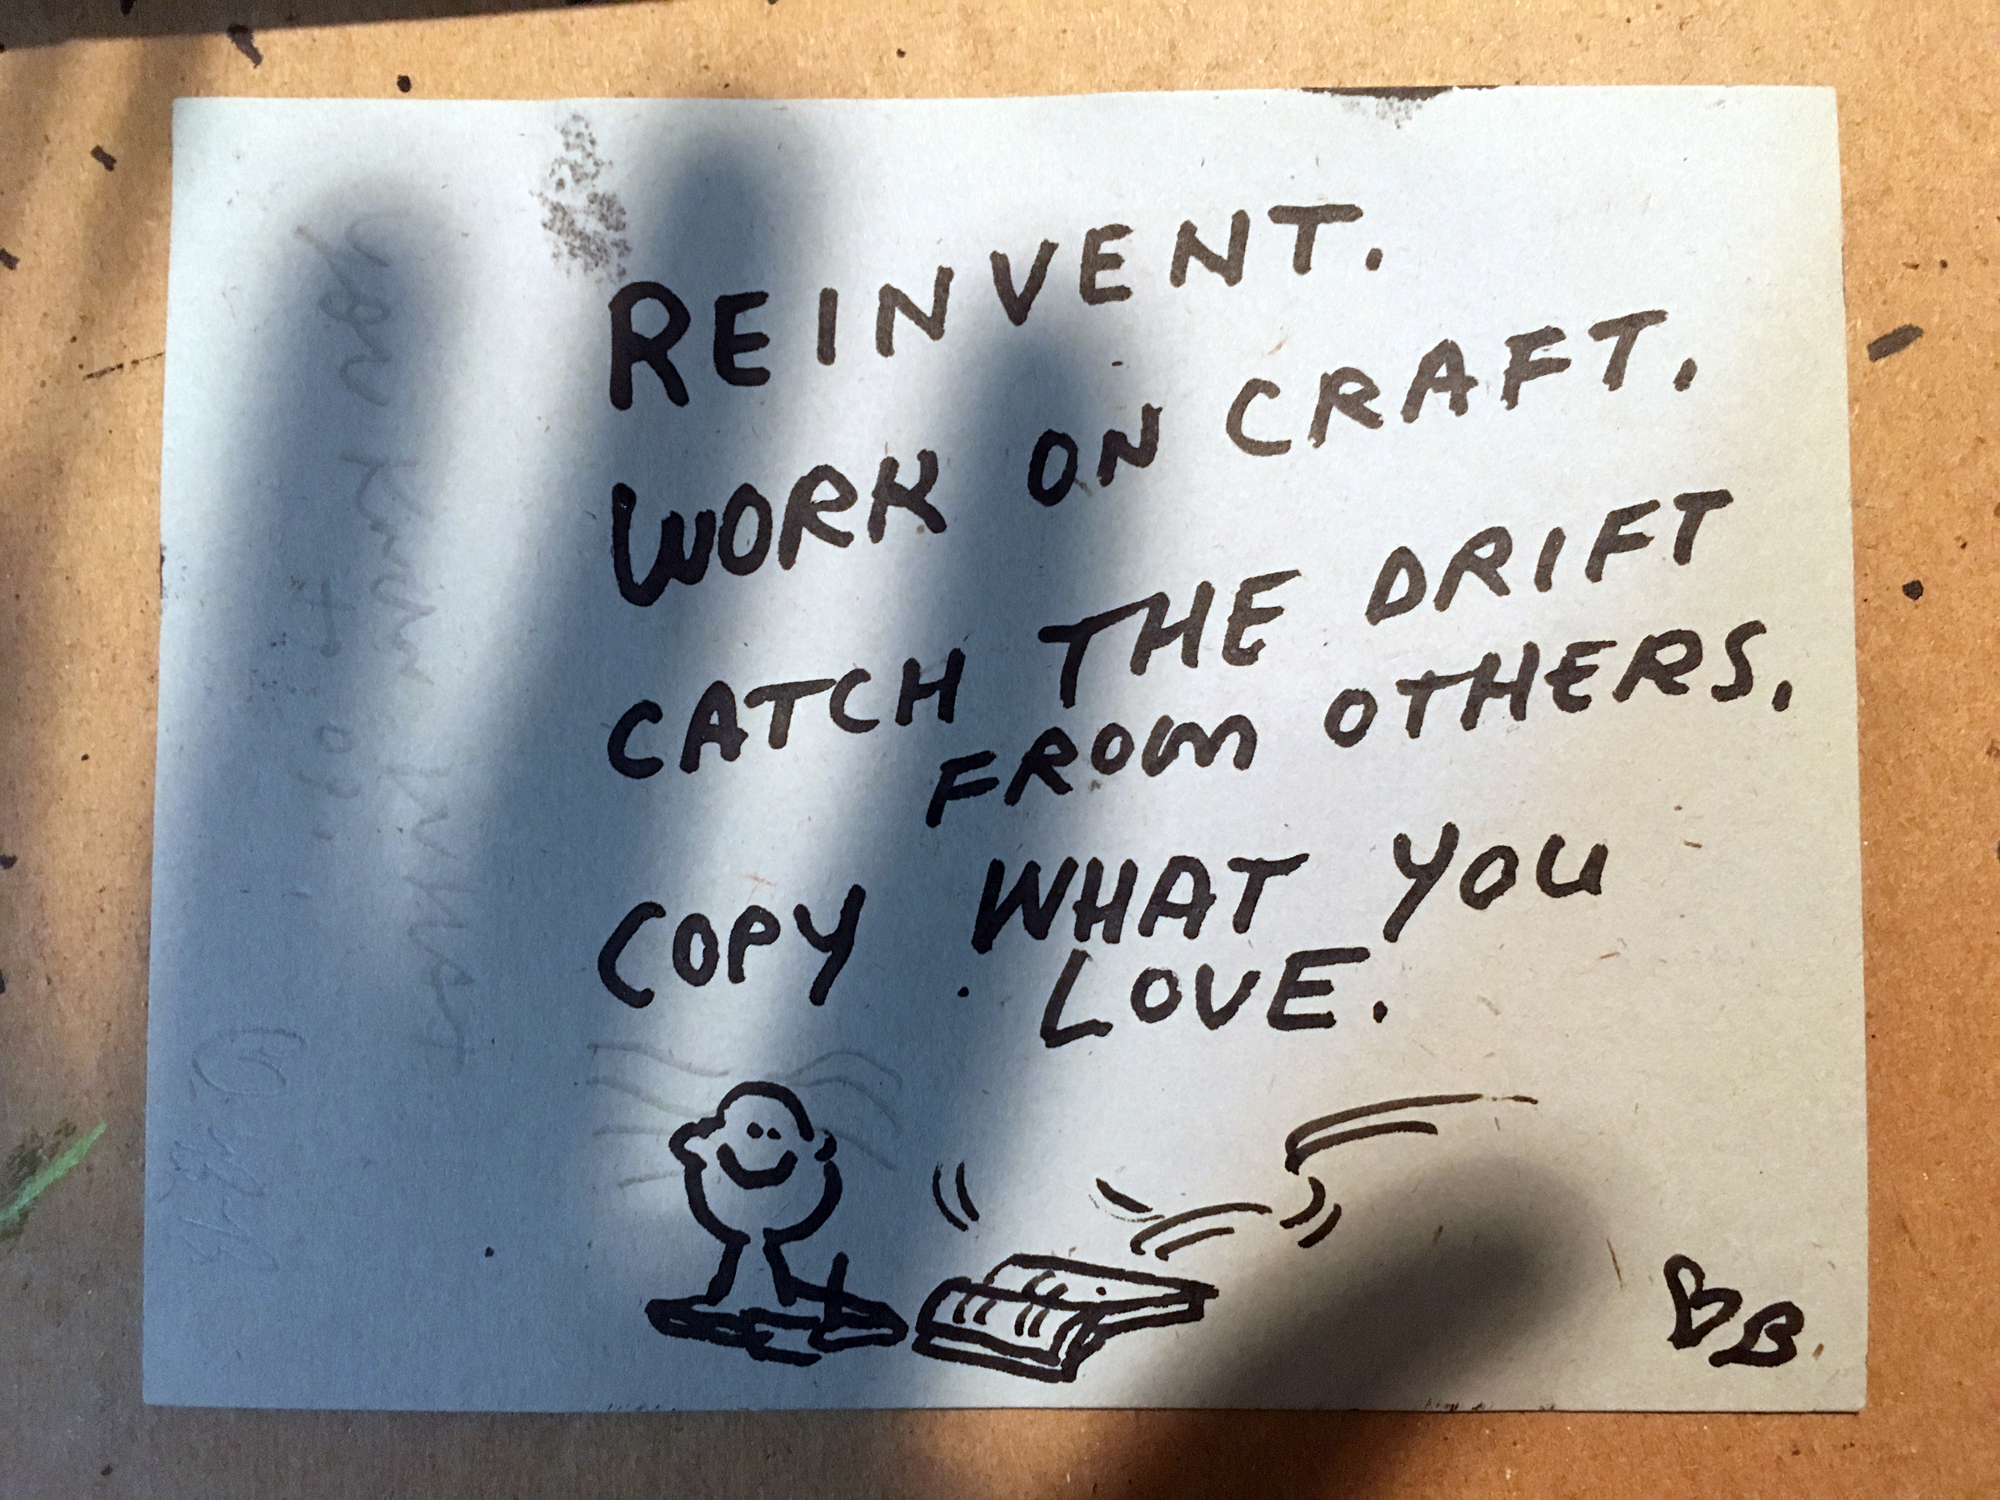 REINVENT.
WORK ON CRAFT.
CATCH THE DRIFT
FROM OTHERS.
COPY WHAT YOU
LOVE.
BB